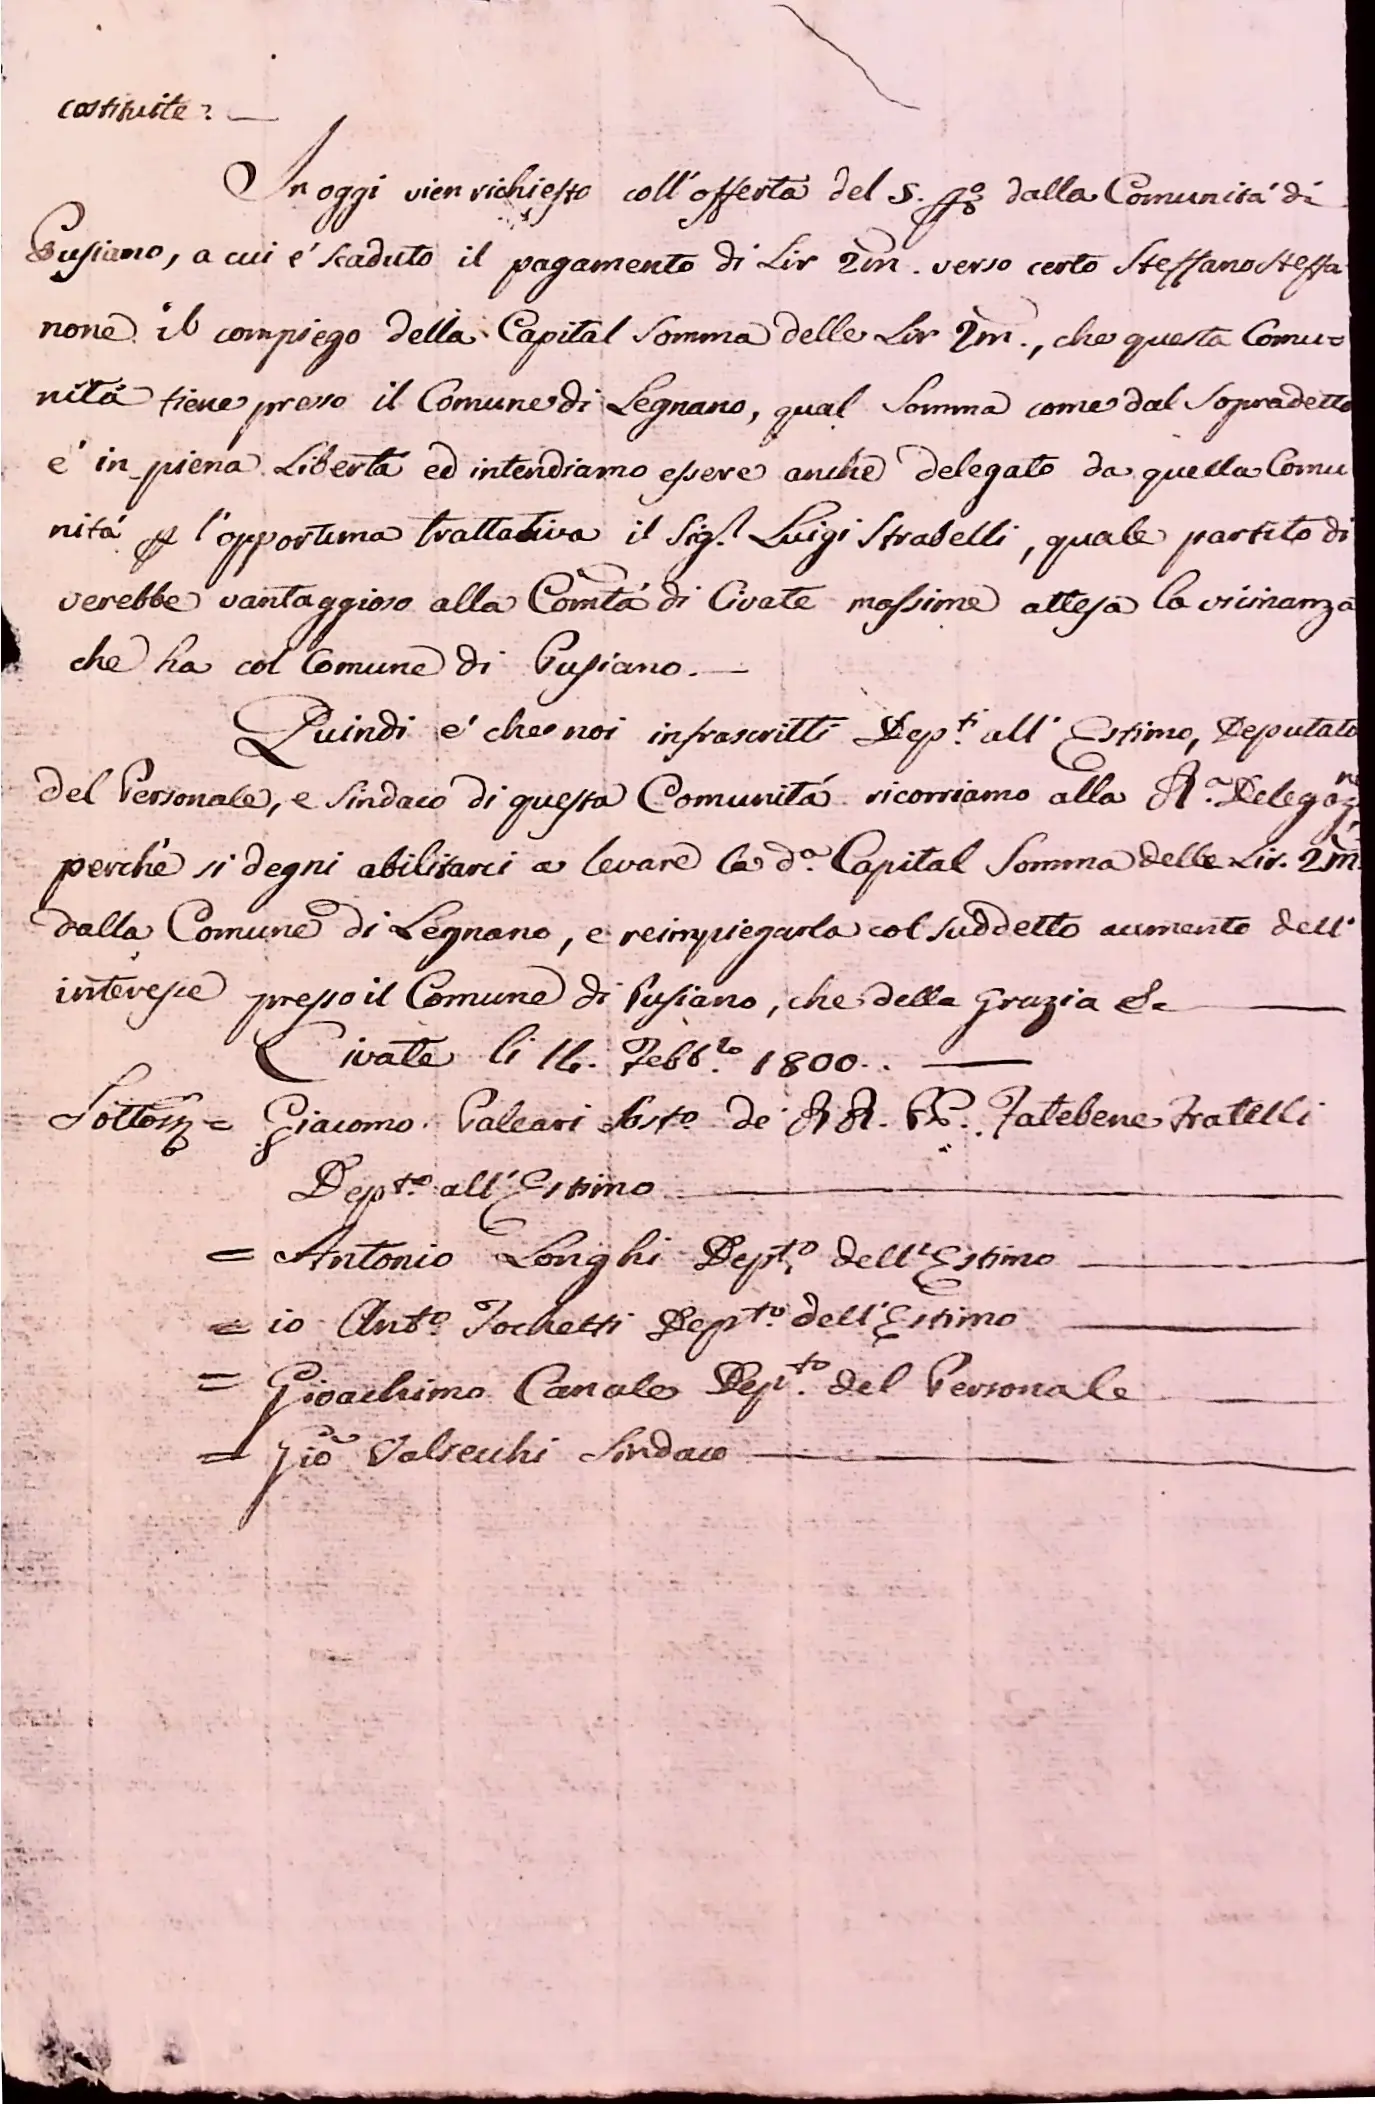 costituite. —
In oggi vien richiesto coll'offerta del 5. p% dalla Comunità di
Pusiano, a cui é scaduto il pagamento di Lir 2m̃. verso certo Steffano Steffa
none il compiego della Capital Somma delle Lir 2m̃., che questa Comu=
nità tiene presso il Comune di Legnano, qual Somma come dal Sopradetto
é in piena Libertà ed intendiamo essere anche delegato da quella Comu
nità p l'opportuna trattativa il Sig.r Luigi Strabelli, quale partito di
verebbe vantaggioso alla Com̃tà di Civate massime attesa la vicinanza
che ha col Comune di Pusiano. —
Quindi é che noi infrascritti Dep.ti all'Estimo, Deputato
del Personale, e Sindaco di questa Comunità ricorriamo alla R.a Delegaz.ne
perché si degni abilitarci a levare la d.a Capital Somma delle Lir. 2m̃.
dalla Comune di Legnano, e reimpiegarla col suddetto aumento dell'
interesse presso il Comune di Pusiano, che della Grazia &c —
Civate li 14. Febb.ro 1800. —
Sottoss = Giacomo Paleari Sost.o de' RR. PP. Fatebene Fratelli
Dep.to all'Estimo —
= Antonio Longhi Dep.to dell'Estimo —
= io Ant.o Fochetti Dep.to dell'Estimo —
= Gioachimo Canale Dep.to del Personale —
= Gio Valsecchi Sindaco —